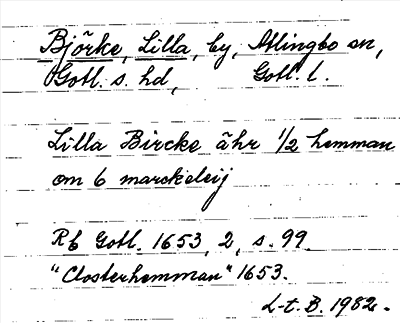 Björke, Lilla, by, Atlingbo sn,
Gotl. s. hd, Gotl. l.
Lilla Bircke ähr 1/2 hemman
om 6 marckeleij
Rb Gotl. 1653, 2, s. 99.
"Closterhemman" 1653.
L-t. B. 1982.